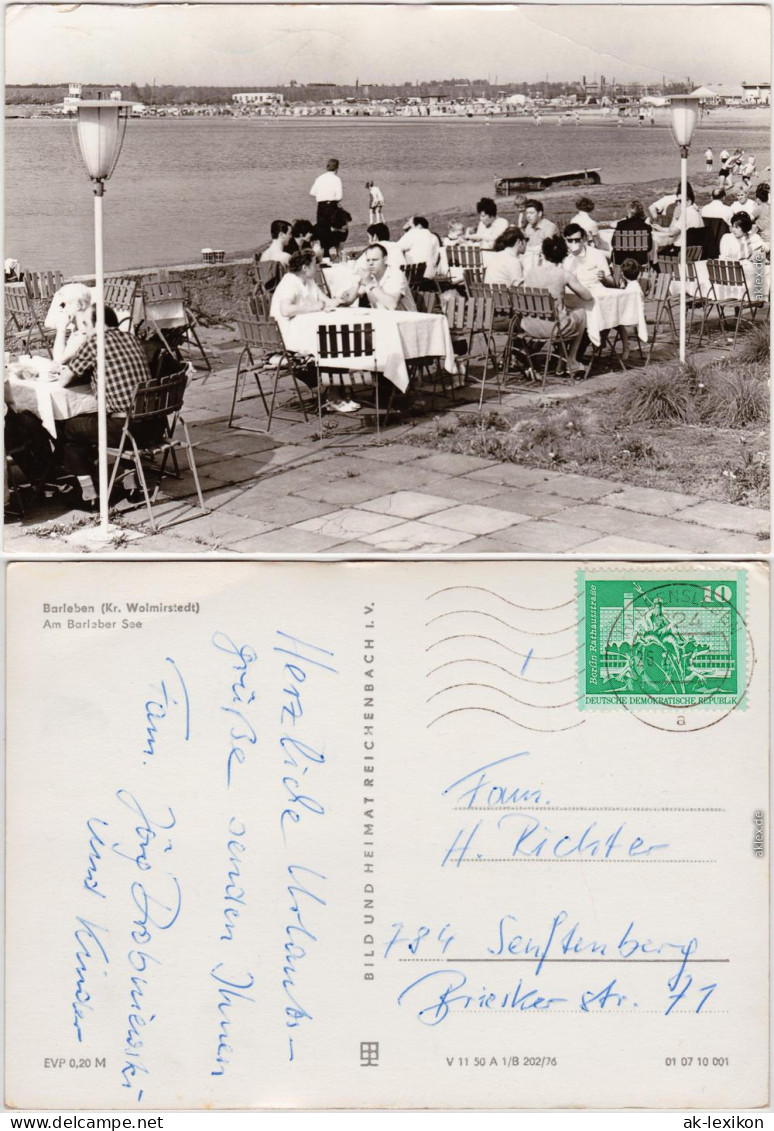 Barleben (Kr. Wolmirstedt)
Am Barleber See
Herzliche Urlaubs-
grüße senden Ihnen
Fam. Jörg Drobniewski
und Kinder
EVP 0,20 M
BILD UND HEIMAT REICHENBACH I. V.
10
Berlin Rathausstraße
DEUTSCHE DEMOKRATISCHE REPUBLIK
a
Fam.
H. Richter
784 Senftenberg
Briesker str. 71
V 11 50 A 1/B 202/76
01 07 10 001
aklex.de
aklex.de
ak-lexikon DELCAMPE.NET
ak-lexikon